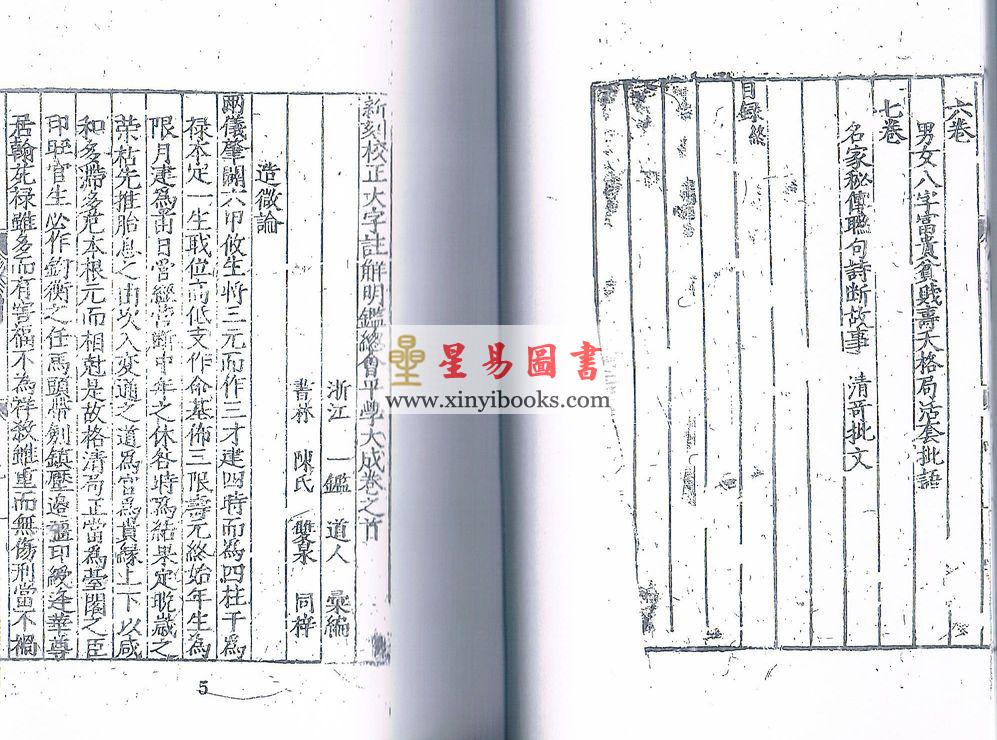 六卷
男女八字富貴貧賤壽夭格局活套批語
七卷
名家秘傳聯句詩断故事 清奇批文
目録終
新刻校正大字註解明鑑總會平學大成卷之首
浙江 一鑑 道人 彙編
書林 陳氏 雙泉 同梓
造微論
兩儀肇闢六甲攸生将三元而作三才建四時而為四柱干為
禄本定一生職位高低支作命基佈三限壽元終始年生為
限月建為苗日當經營斷中年之休咎時為結果定晚歲之
荣枯先推胎息之由次入变通之道為官為貴縁上下以咸
和多滯多危本根元而相尅是故格清局正當為臺閣之臣
印旺官生必作鈞衡之任馬頭帶劍鎮壓邉疆印綬逢華尊
居翰苑禄雖多而有害福不為祥殺雖重而無傷刑當不禍
星易圖書
www.xinyibooks.com
5